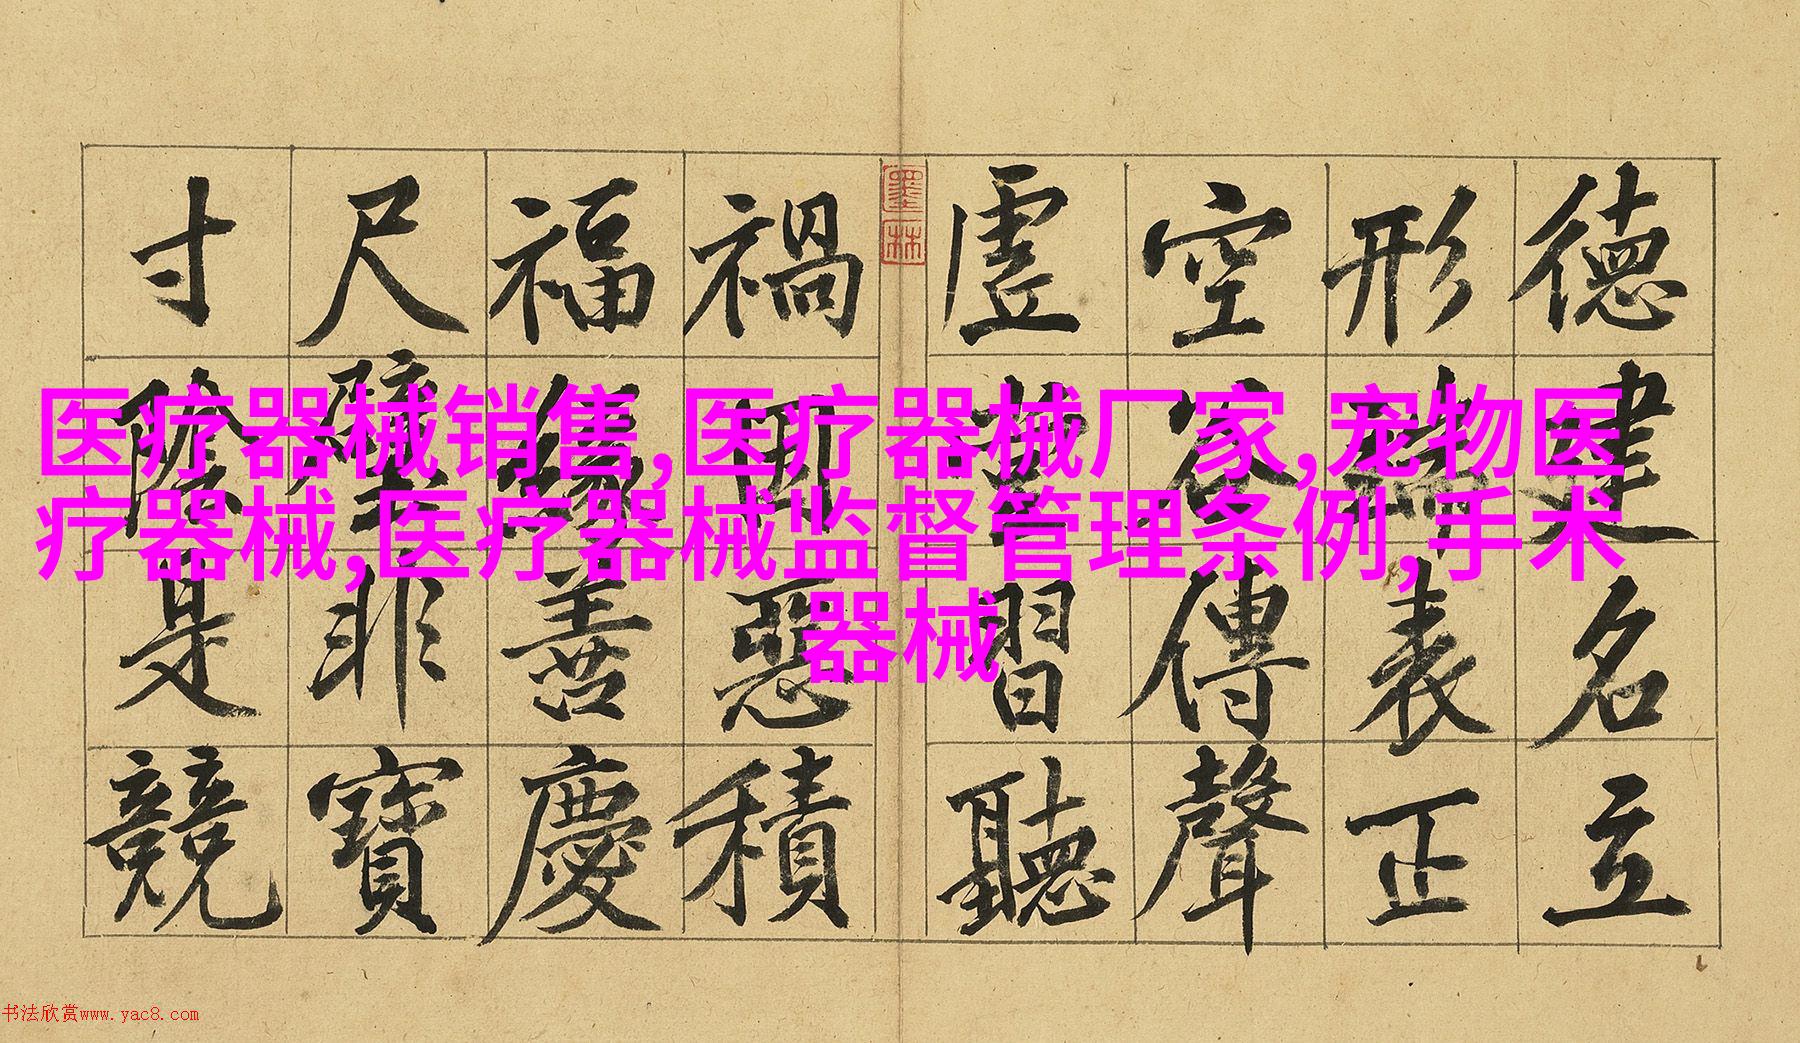 德建名立
形端表正
空谷傳聲
虛堂習聽
禍因惡積
福緣善慶
尺璧非寶
寸陰是競
墨林
医疗器械销售,医疗器械厂家,宠物医
疗器械,医疗器械监督管理条例,手术
器械
书法欣赏www.yac8.com